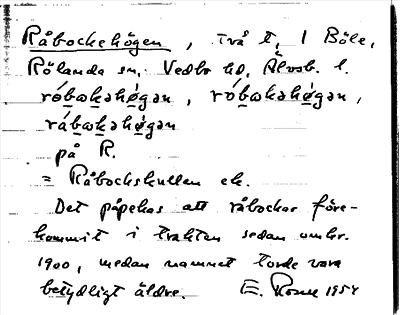 Råbockehögen, två t, 1 Böle,
Rölanda sn. Vedbo hd, Älvsb. l.
róbωkəhǿgən, róbωkəhøgən,
rábωkəhǿgən
på R.
= Råbockskullen ek.
Det påpekas att råbockar före-
kommit i trakten sedan omkr.
1900, medan namnet torde vara
betydligt äldre. E. 1954